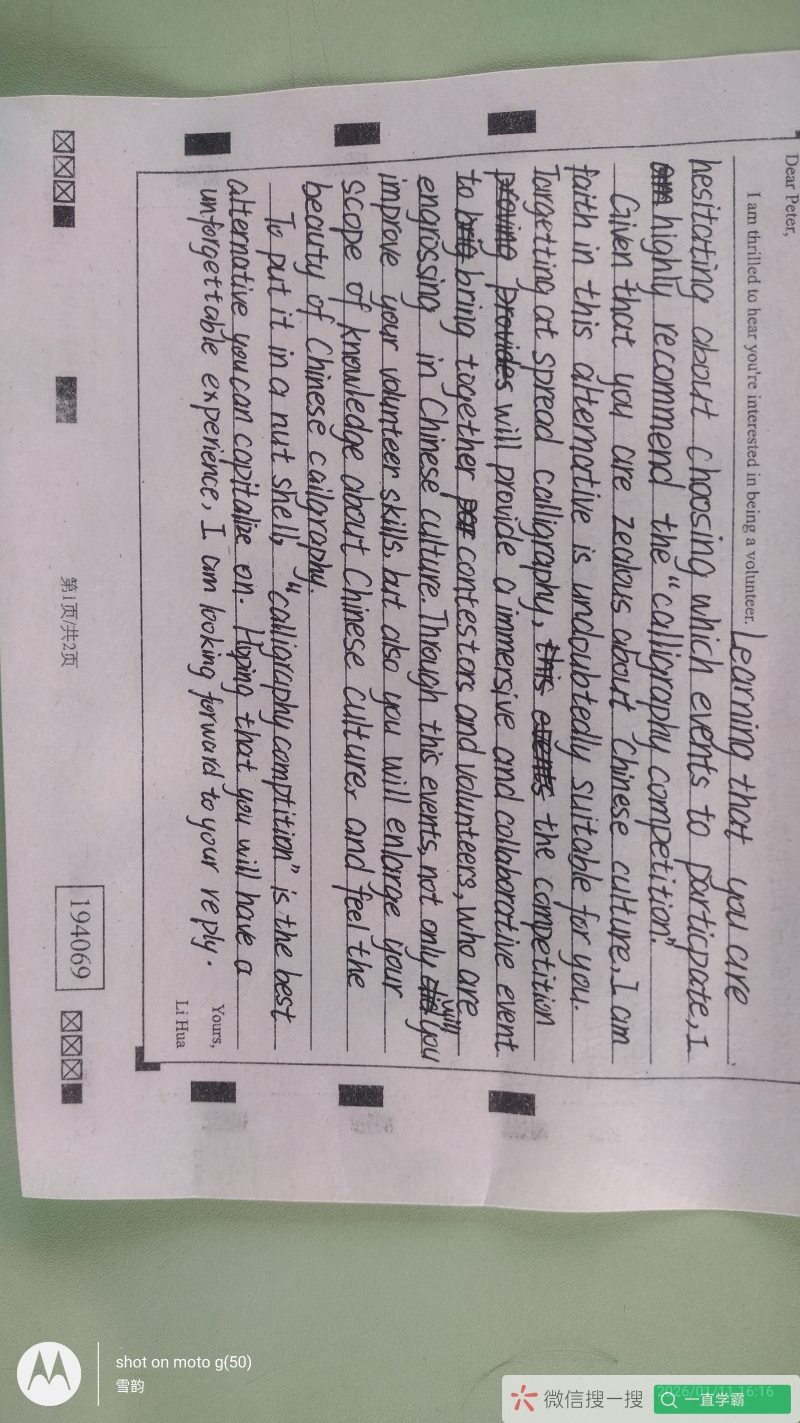 Dear Peter,
I am thrilled to hear you're interested in being a volunteer. Learning that you are
hesitating about choosing which events to participate, I
highly recommend the "calligraphy competition".
Given that you are zealous about Chinese culture, I am
faith in this alternative is undoubtedly suitable for you.
Targetting at spread calligraphy, this events the competition
proving provides will provide a immersive and collaborative event
to bring together contestors and volunteers, who are
engrossing in Chinese culture. Through this events, not only will you
improve your volunteer skills, but also you will enlarge your
scope of knowledge about Chinese culture, and feel the
beauty of Chinese cailgraphy.
To put it in a nut shell, "calligraphy comptition" is the best
alternative you can capitalize on. Hoping that you will have a
unforgettable experience, I am looking forward to your reply.
Yours,
Li Hua
第1页/共2页
194069
shot on moto g(50)
雪韵
2026/01/11 16:16
微信搜一搜
一直学霸